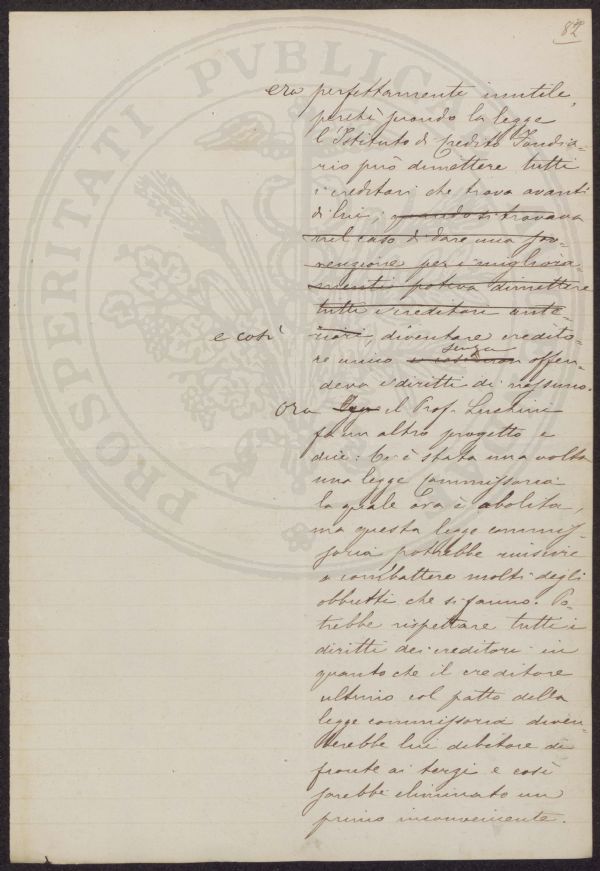 82
PROSPERITATI PVBLICAE
era perfettamente inutile,
perchè quando la legge
l'Istituto di Credito Fondia-
rio può dimettere tutti
i creditori che trova avanti
di lui, quando si trovava
nel caso di dare una sov-
venzione per i migliora-
menti poteva dimettere
tutti i creditori ante-
e così riori, diventare credito-
re unico e così non senza offen-
deva i diritti di nessuno.
Ora il Prof. Luchini
fa un altro progetto e
dice: Ci è stata una volta
una legge commissoria
la quale ora è abolita,
ma questa legge commis-
soria potrebbe riuscire
a combattere molti degli
obbietti che si fanno. Po-
trebbe rispettare tutti i
diritti dei creditori in
quanto che il creditore
ultimo col patto della
legge commissoria diven-
terebbe lui debitore di
fronte ai terzi e così
sarebbe eliminato un
primo inconveniente.